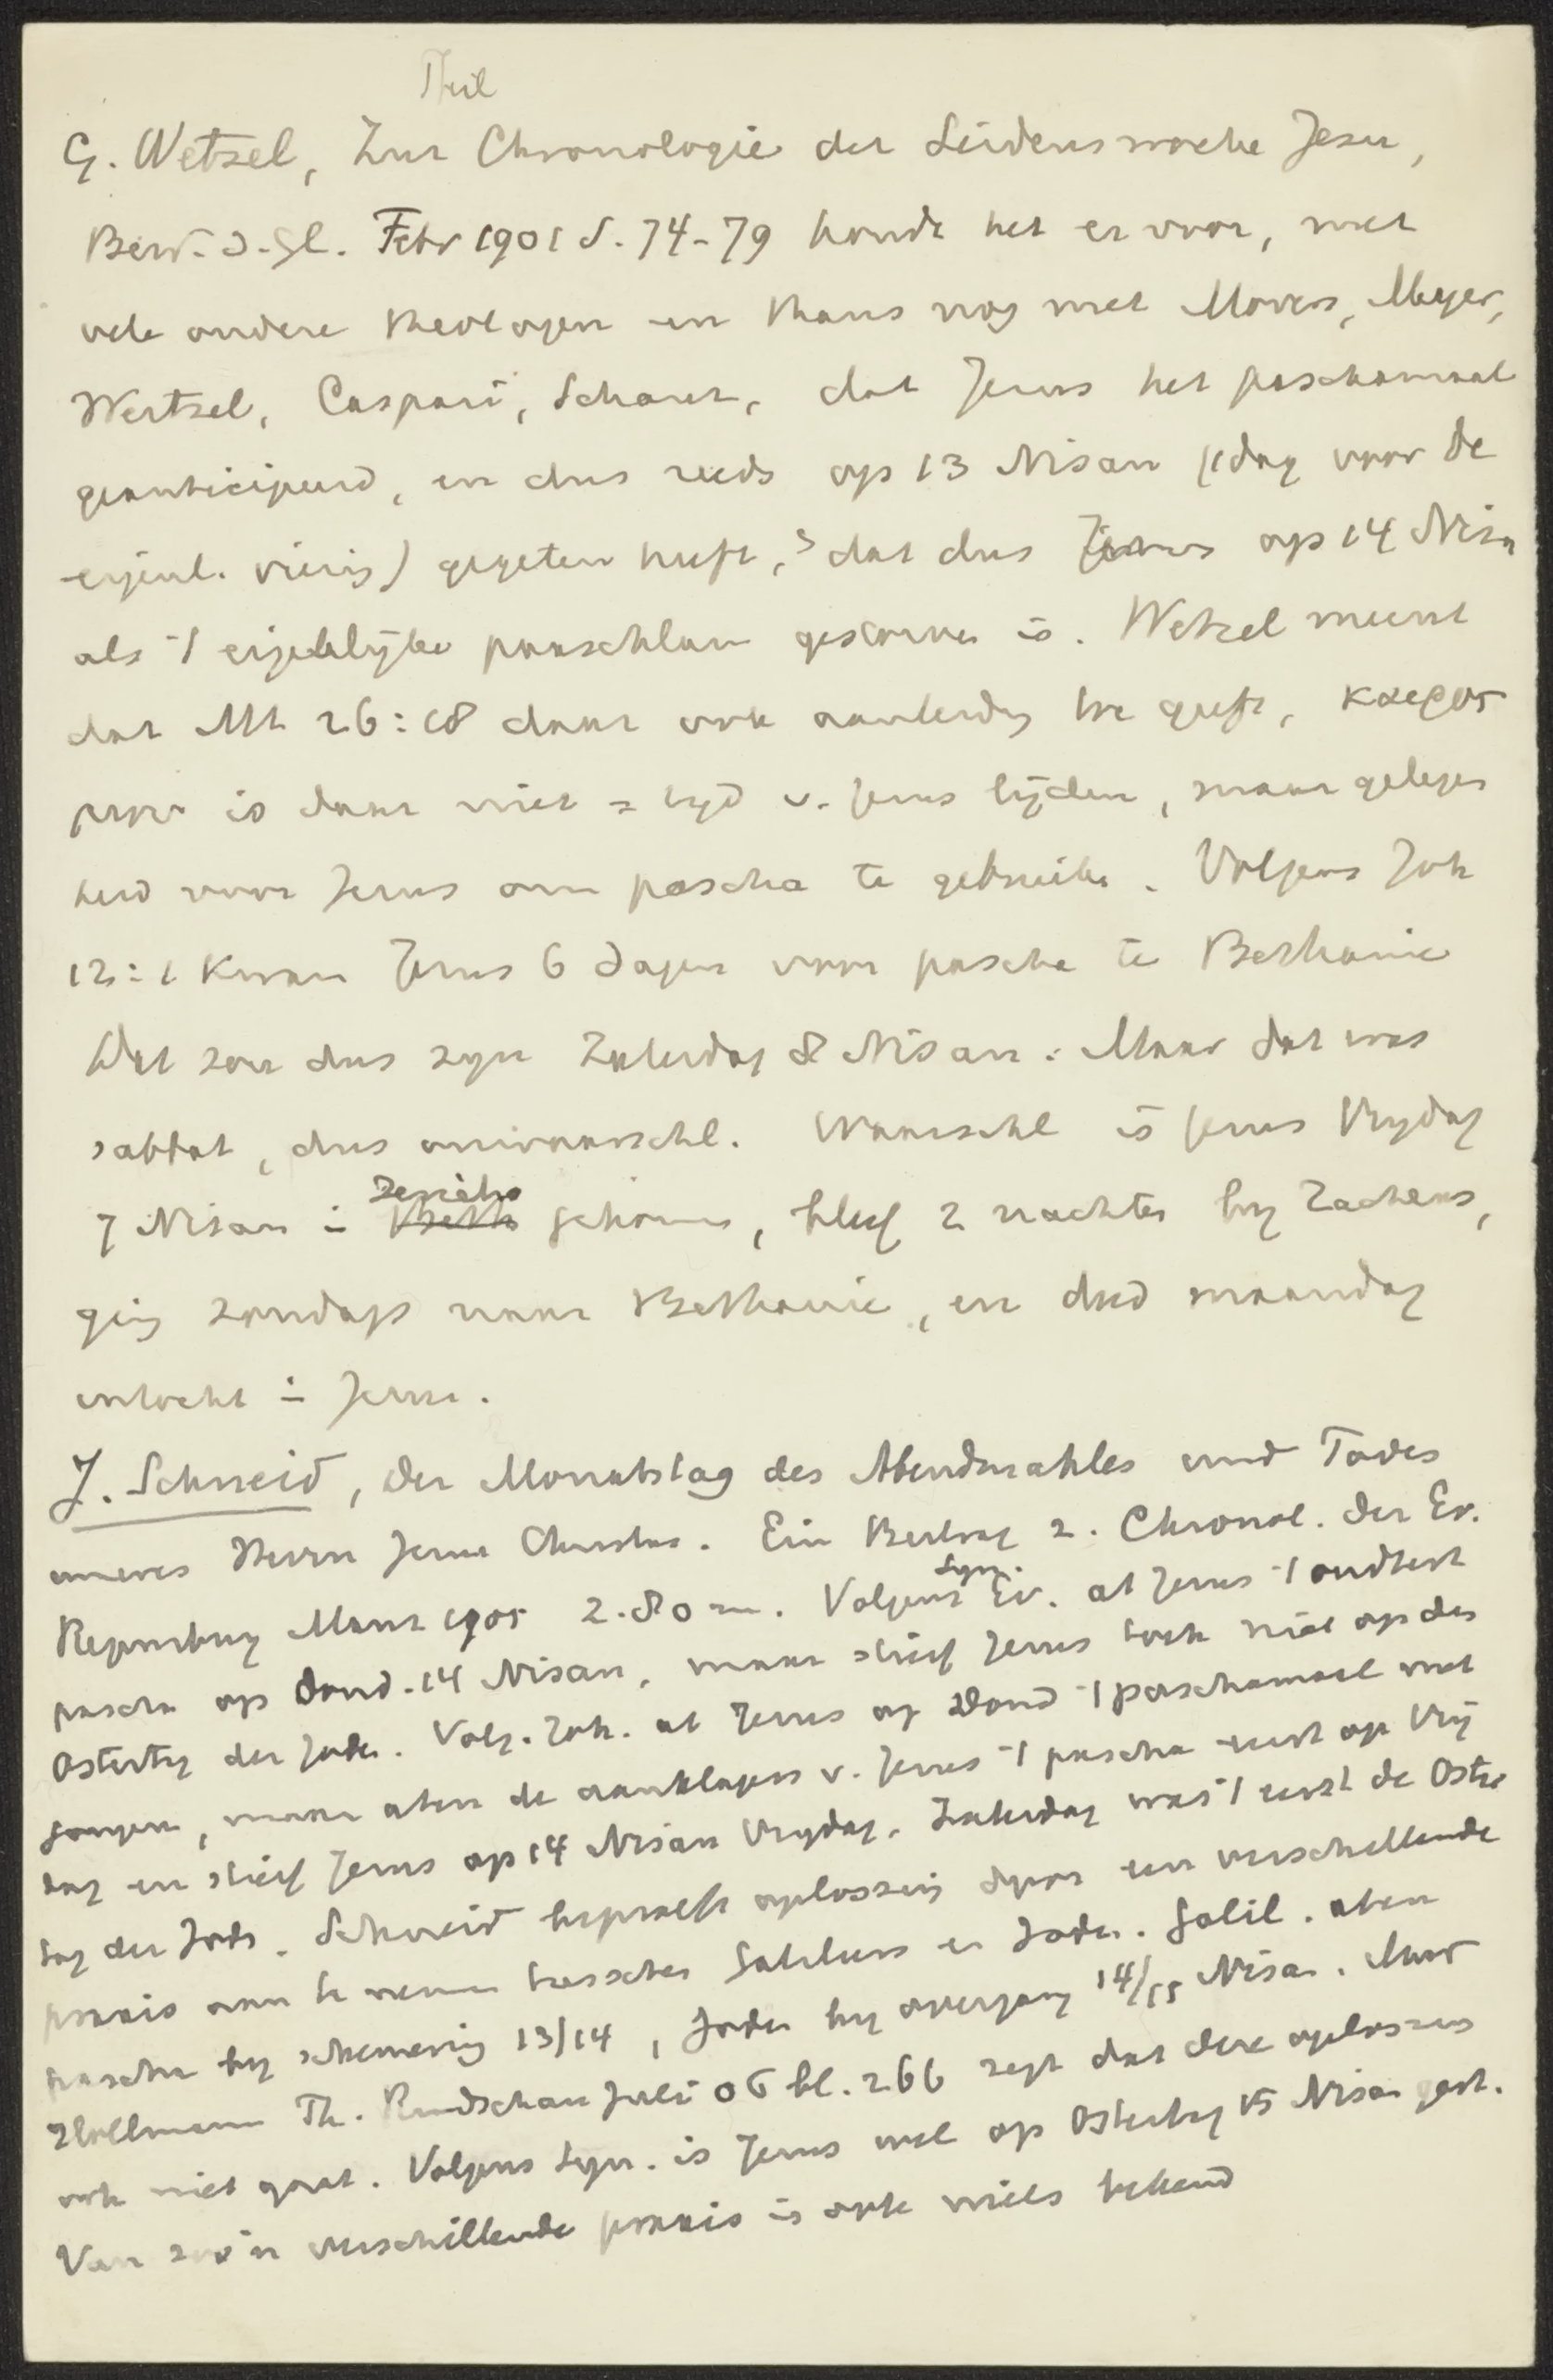 Theil
G. Wetzel, Zur Chronologie der Leidenswoche Jesu,
Bew. d. Gl. Febr 1901 S. 74-79 houdt het er voor, met
vele andere theologen en thans nog met Movers, Meyer,
Weitzel, Caspari, Schanz, dat Jezus het paschamaal
geanticipeerd, en dus reeds op 13 Nisan (1 dag voor de
eigenl. viering) gegeten heeft, dat dus Jezus op 14 Nisan
als 't eigenlijke paaschlam gestorven is. Wetzel meent
dat Mt 26:18 daar ook aanleiding toe geeft, καιρος
μου is daar niet = tijd v. Jezus lijden, maar gelegen
heid voor Jezus om pascha te gebruiken. Volgens Joh
12:1 kwam Jezus 6 dagen voor pascha te Bethanie
Dat zou dus zijn Zaterdag 8 Nisan. Maar dat was
sabbat, dus onwaarschl. Waarschl is Jezus Vrydag
7 Nisan in Jericho gekomen, bleef 2 nachten by Zacheus,
ging Zondags naar Bethanie, en deed maandag
intocht in Jeruz.
J. Schneid, Der Monatstag des Abendmahles und Todes
unseres Herrn Jesus Christus. Ein Beitrag z. Chronol. der Ev.
Regensburg Manz 1905 2.80 m. Volgens Syn. Ev. at Jezus 't oudtest
pascha op Dond. 14 Nisan, maar stierf Jezus toch niet op des
Ostertag der Joden. Volg. Joh. at Jezus op Dond 't paschamaal met
jongeren, maar aten de aanklagers v. Jezus 't pascha eerst op Vrij
dag en stierf Jezus op 14 Nisan Vrydag. Zaterdag was 't eerst de Oster
tag der Joden. Schneid beproeft oplossing door een verschillende
praxis aan te nemen tusschen Galileers en Joden. Galil. aten
pascha by schemering 13/14, Joden by overgang 14/15 Nisan. Maar
Hollmann Th. Rundschau Juli 06 bl. 266 zegt dat deze oplossing
ook niet gaat. Volgens Syn. is Jezus wel op Ostertag 15 Nisan gest.
Van zoo'n verschillende praxis is ook niets bekend